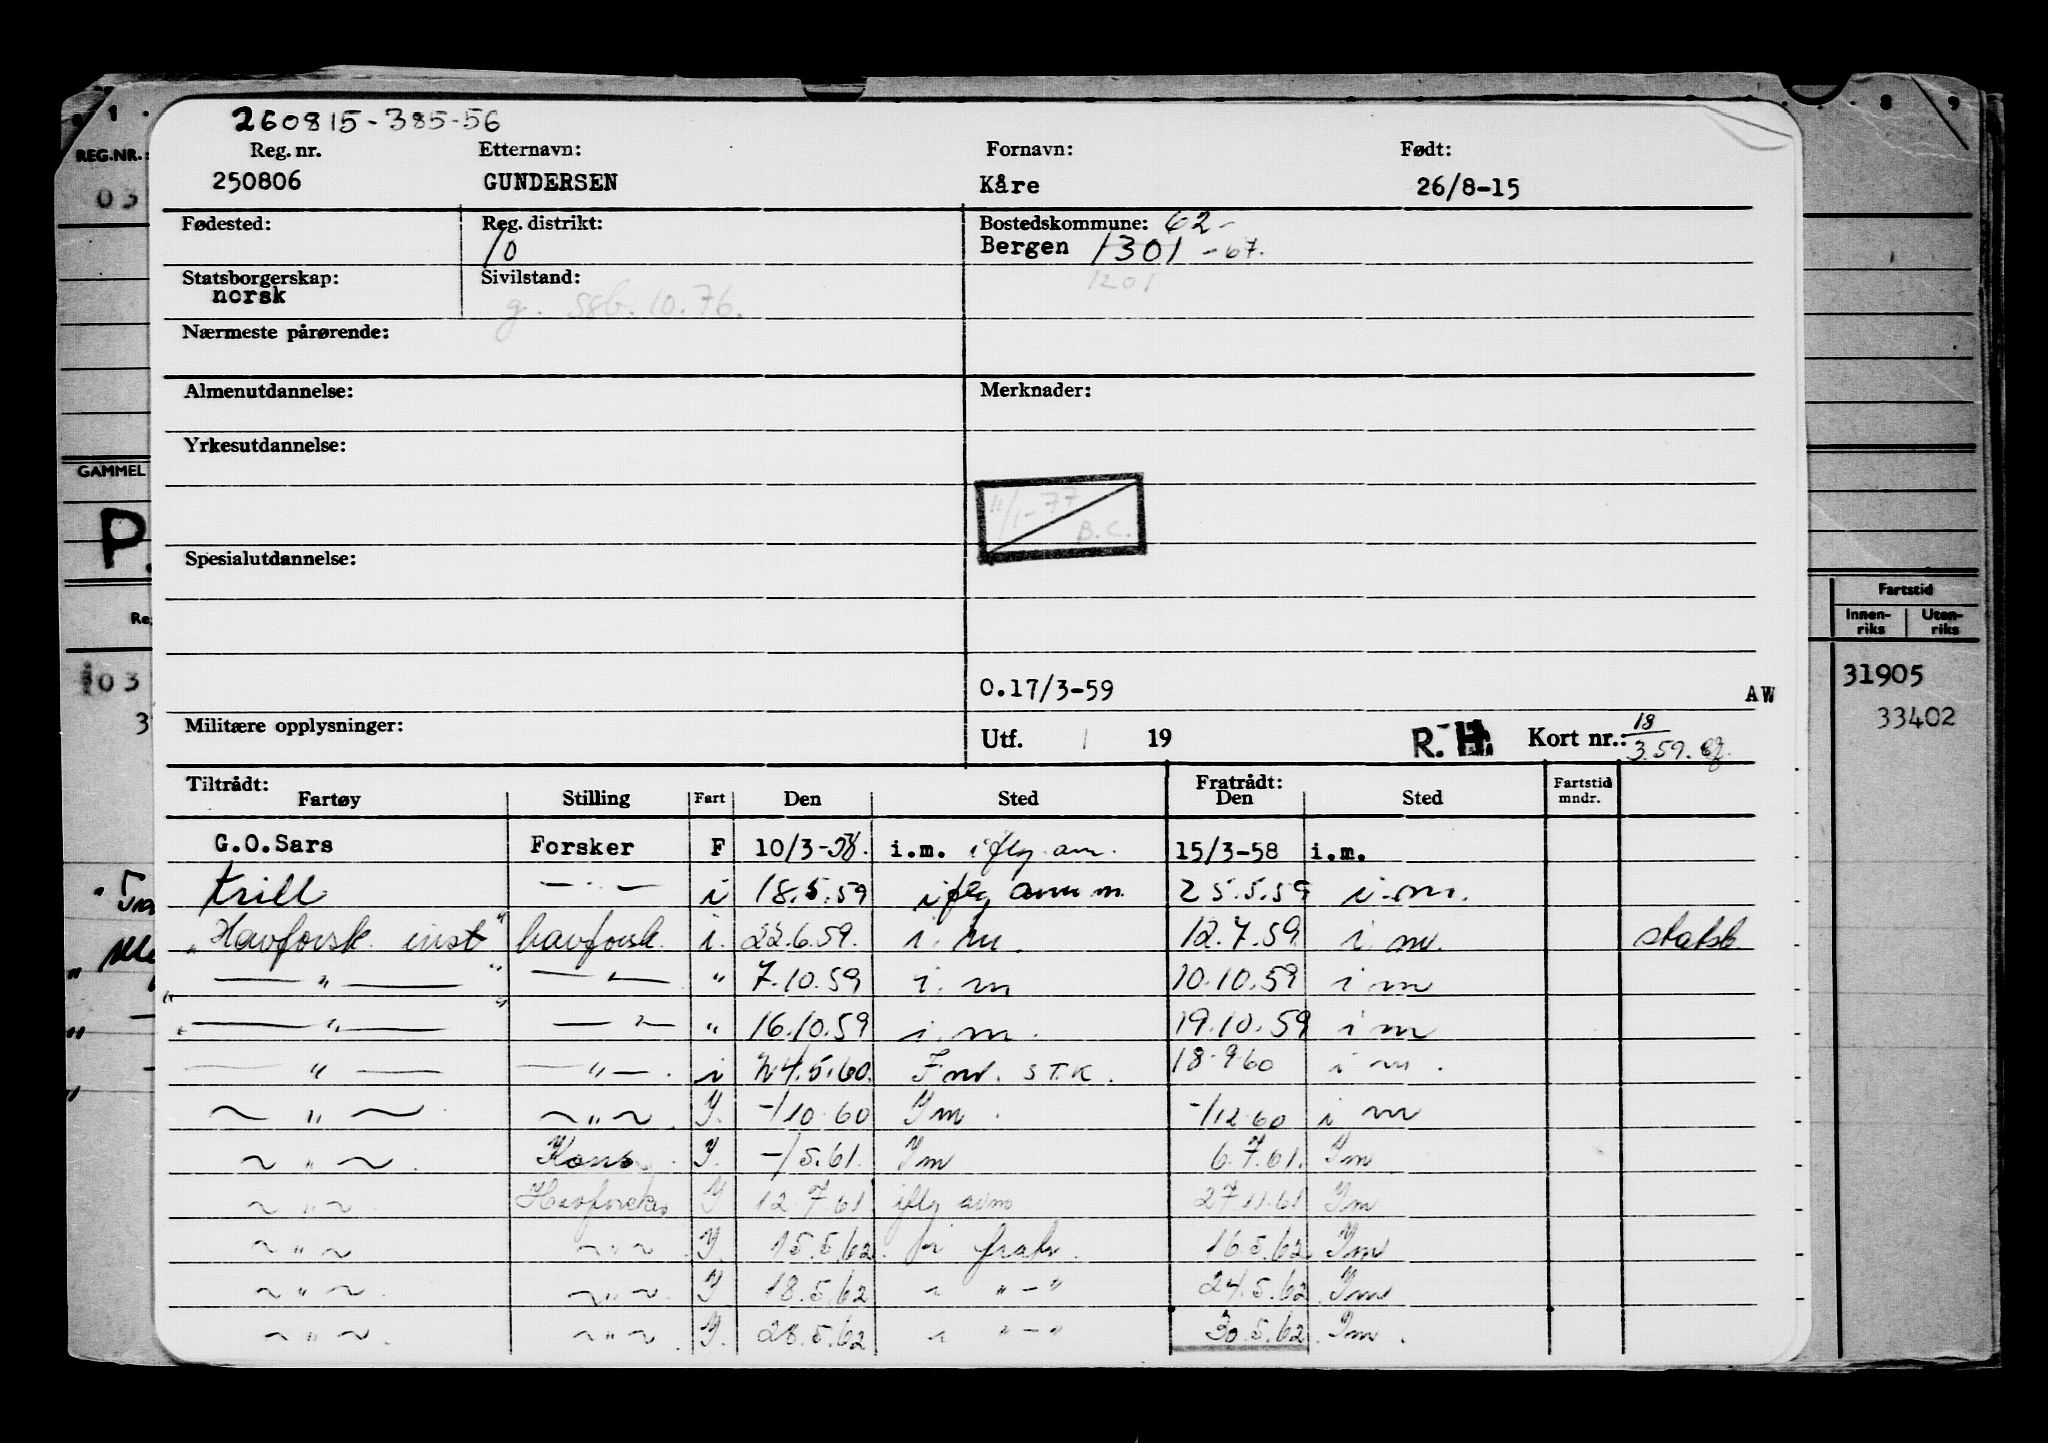 260815-385-56
Reg. nr. Etternavn: Fornavn: Født:
250806 GUNDERSEN Kåre 26/8-15
Fødested: Reg. distrikt: Bostedskommune: 62-
10 Bergen 1301 -67.
Statsborgerskap: Sivilstand: 1201
norsk g. ssb. 10.76.
Nærmeste pårørende:
Almenutdannelse: Merknader:
Yrkesutdannelse:
11/1-77
B.C.
Spesialutdannelse:
0.17/3-59 AW
Militære opplysninger: Utf. / 19 R.H. Kort nr.: 18/3.59.
Tiltrådt: Fratrådt:
Fartøy Stilling Fart Den Sted Den Sted Fartstid mndr.
G.O.Sars Forsker F 10/3-58. i.m. iflg. anm. 15/3-58 i.m.
Krill — " — i 18.5.59 iflg anm m. 25.5.59 i.m.
"Havforsk. inst" havforsk. i. 22.6.59. i. m. 12.7.59 i m. statsb.
— " — — " — " 7.10.59 i. m 10.10.59 i m
— " — — " — " 16.10.59 i. m. 19.10.59 i m
— " — — " — . i 24.5.60. Fnr. S T.K. 18.9.60 i m.
~ " ~ ~ " ~ Y. -/10.60 Ym. -/12.60 i m
~ " ~ . Kons. Y. -/5.61. Ym 6.7.61. Ym
~ " ~ Havforsker Y 12.7.61 iflg anm 27.11.61 Ym
~ " ~ ~ " ~ . Y. 15.5.62. fr fratr. 16.5.62. Ym
~ " ~ . ~ " ~ . Y 18.5.62 " - " 24.5.62 Ym
~ " ~ . ~ " ~ . Y. 28.5.62 " - " 30.5.62. Ym .
1 . . . 8 9
REG.NR.:
03
GAMMEL
P.
103
3
Fartstid
Innenriks Utenriks
31905
33402